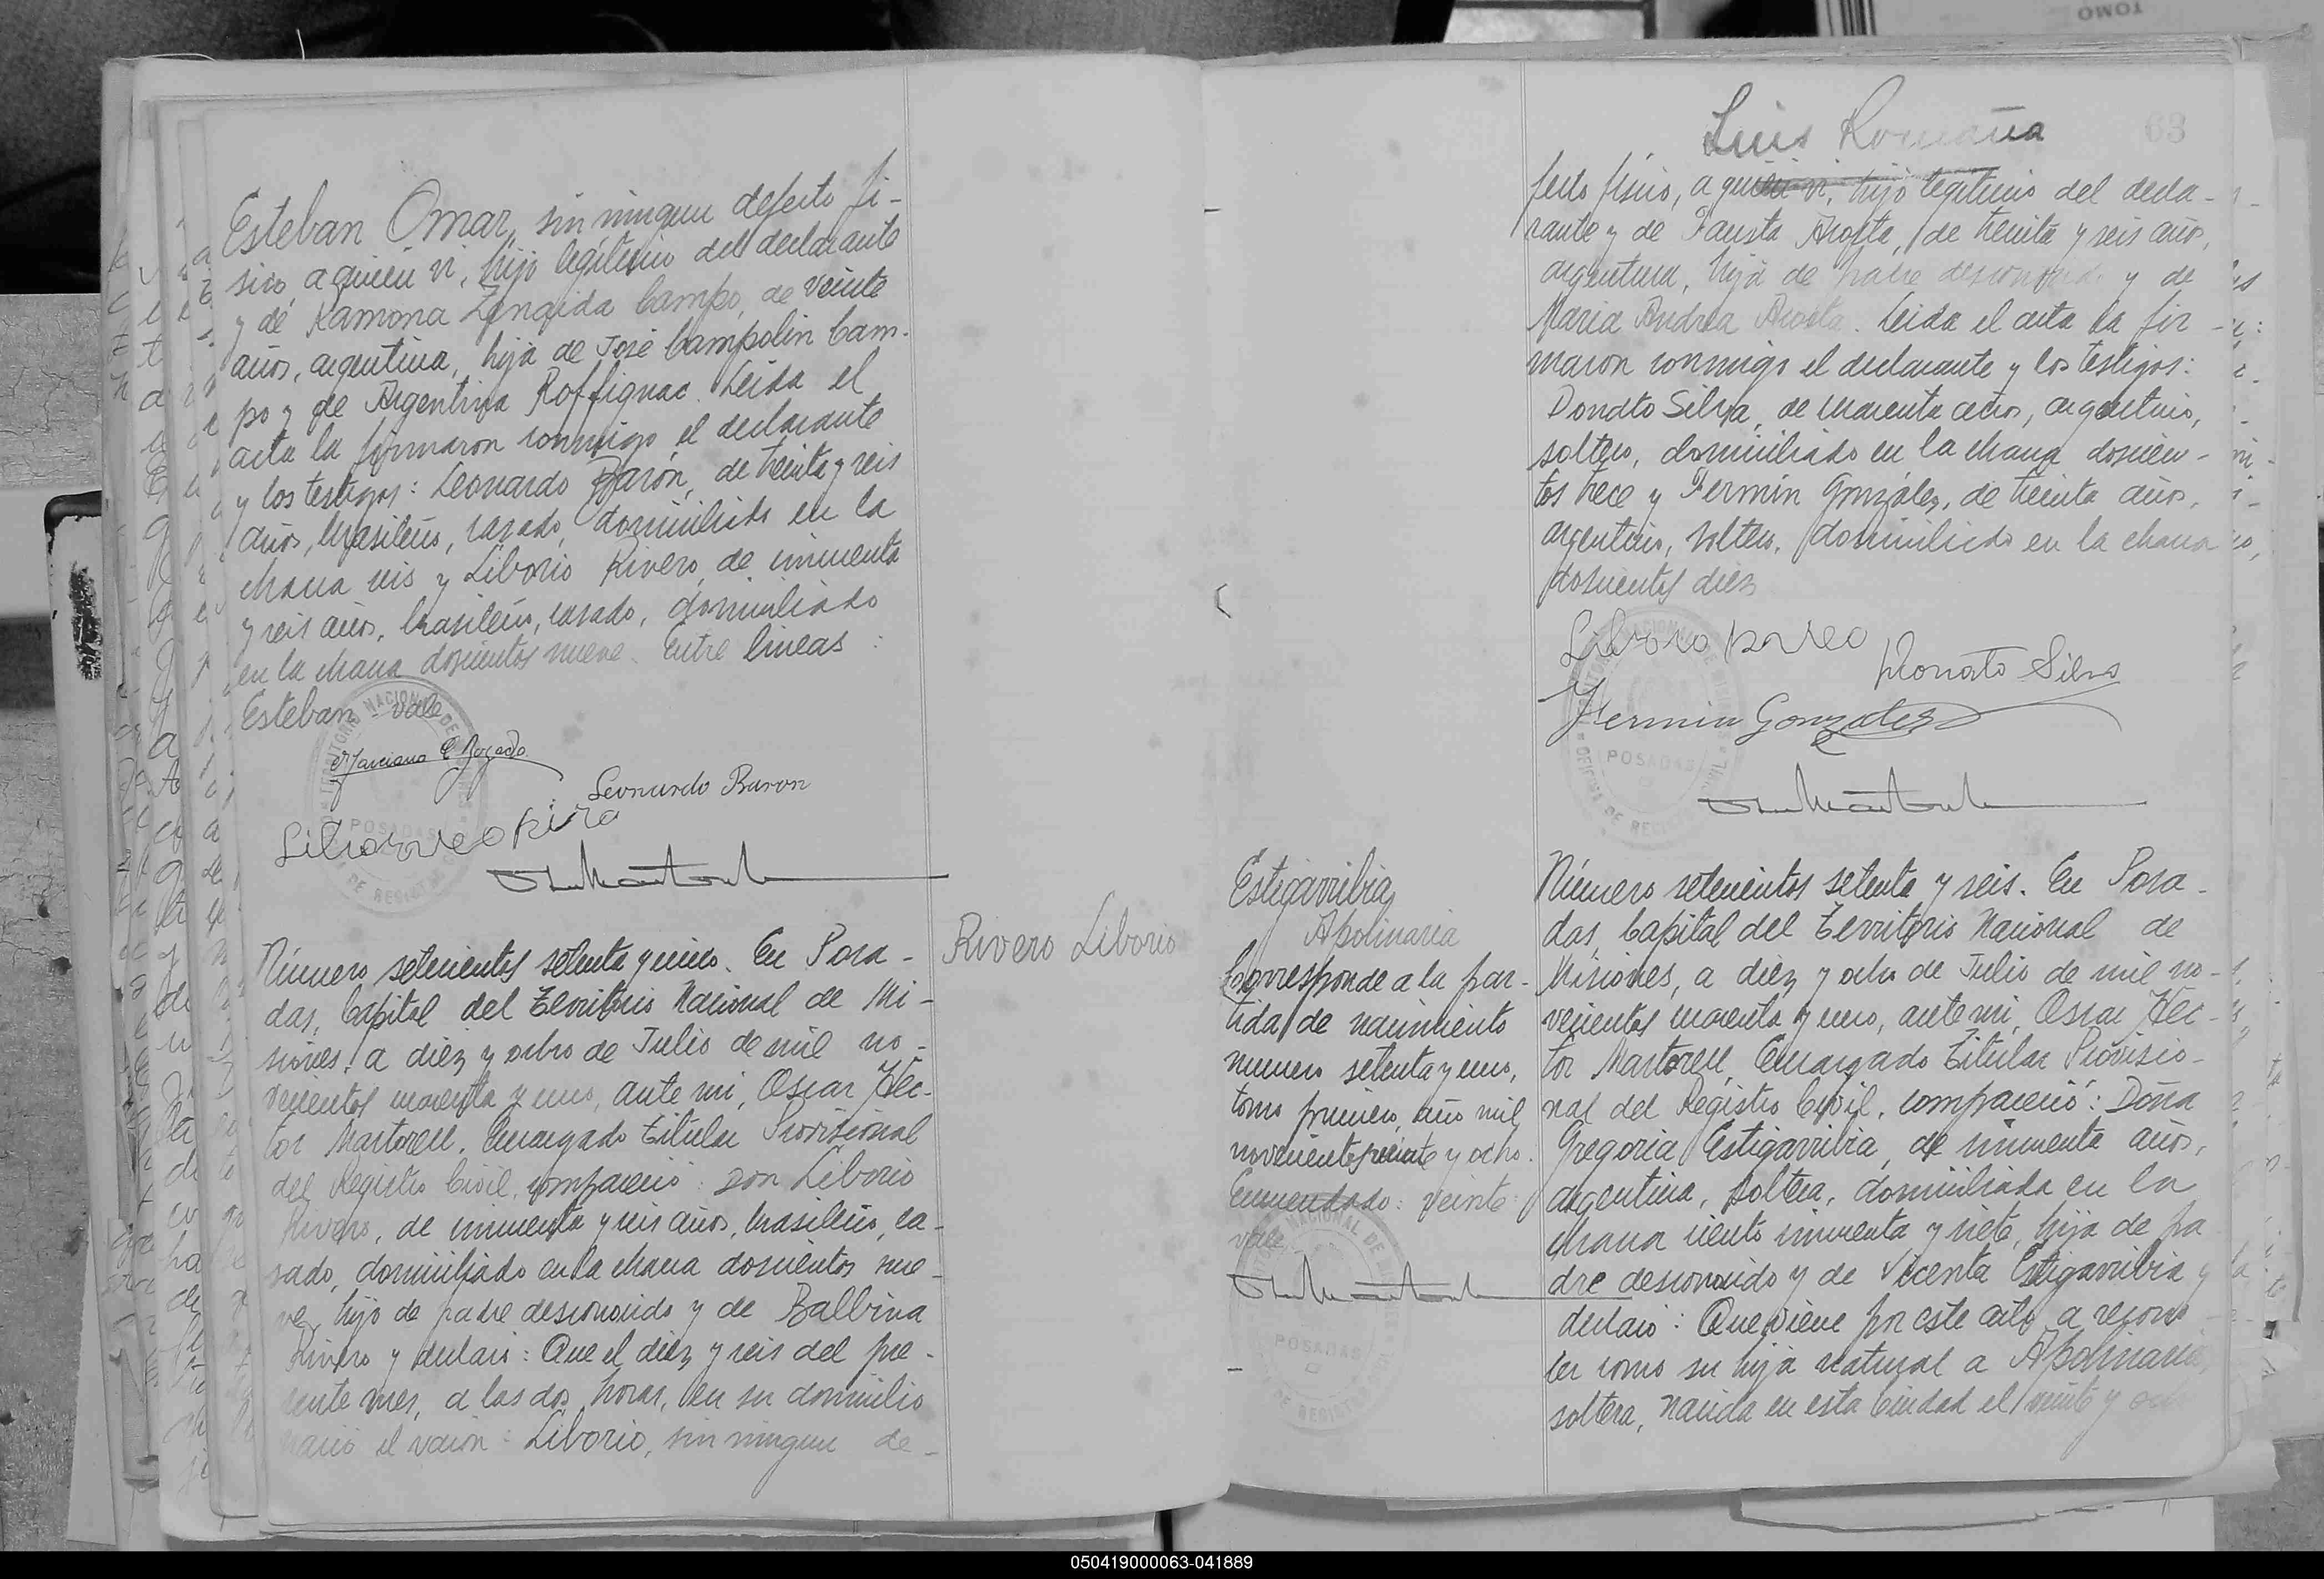 TOMO
Esteban Omar, sin ningun defecto fi-
sico, a quien vi, hijo legítimo del declarante
y de Ramona Zenaida Campo, de veinte
años, argentina, hija de José Campolin Cam-
po y de Argentina Roffignac. Leida el
acta la firmaron conmigo el declarante
y los testigos: Leonardo Barón, de treinta y seis
años, brasileño, casado, domiciliado en la
chacra seis y Liborio Rivero, de cincuenta
y seis años, brasileño, casado, domiciliado
en la chacra doscientos nueve. Entre lineas:
Esteban - vale
TERRITORIO NACIONAL DE
POSADAS
DE REGISTRO
Leonardo Baron
Número setecientos setenta y cinco. En Posa-
das, Capital del Territorio Nacional de Mi-
siones, a diez y ocho de Julio de mil no-
vecientos cuarenta y uno, ante mi, Oscar Héc-
tor Martorell, Encargado Titular Provisional
del Registro Civil, compareció: Don Liborio
Rivero, de cincuenta y seis años, brasileño, ca-
sado, domiciliado en la chacra doscientos nue-
ve, hijo de padre desconocido y de Balbina
Rivero y declaró: Que el diez y seis del pre-
sente mes, a las dos horas, en su domicilio
nació el varón: Liborio, sin ningun de-
Rivero Liborio
Luis Romaña
63
fecto físico, a quien vi, hijo legítimo del decla-
rante y de Fausta Acosta, de treinta y seis años,
argentina, hija de padre desconocido y de
Maria Andrea Acosta. Leida el acta la fir-
maron conmigo el declarante y los testigos:
Donato Silva, de cuarenta años, argentino,
soltero, domiciliado en la chacra doscien-
tos trece y Fermín González, de treinta años,
argentino, soltero, domiciliado en la chacra
doscientos diez
Donato Silva
Fermin Gonzalez
POSADAS
Estigarribia
Apolinaria
Corresponde a la par-
tida de nacimiento
numero setenta y uno,
tomo primero, año mil
novecientos veinte y ocho.
Enmendado: veinte:
vale
NACIONAL DE
POSADAS
DE REGISTRO
Número setecientos setenta y seis. En Posa-
das, Capital del Territorio Nacional de
Misiones, a diez y ocho de Julio de mil no-
vecientos cuarenta y uno, ante mi, Oscar Héc-
tor Martorell, Encargado Titular Provisio-
nal del Registro Civil, compareció: Doña
Gregoria Estigarribia, de cincuenta años,
argentina, soltera, domiciliada en la
chacra ciento cincuenta y siete, hija de pa
dre desconocido y de Vicenta Estigarribia y
declaró: Que viene por este acto a recono
cer como su hija natural a Apolinaria,
soltera, nacida en esta Ciudad el veinte y
050419000063-041889